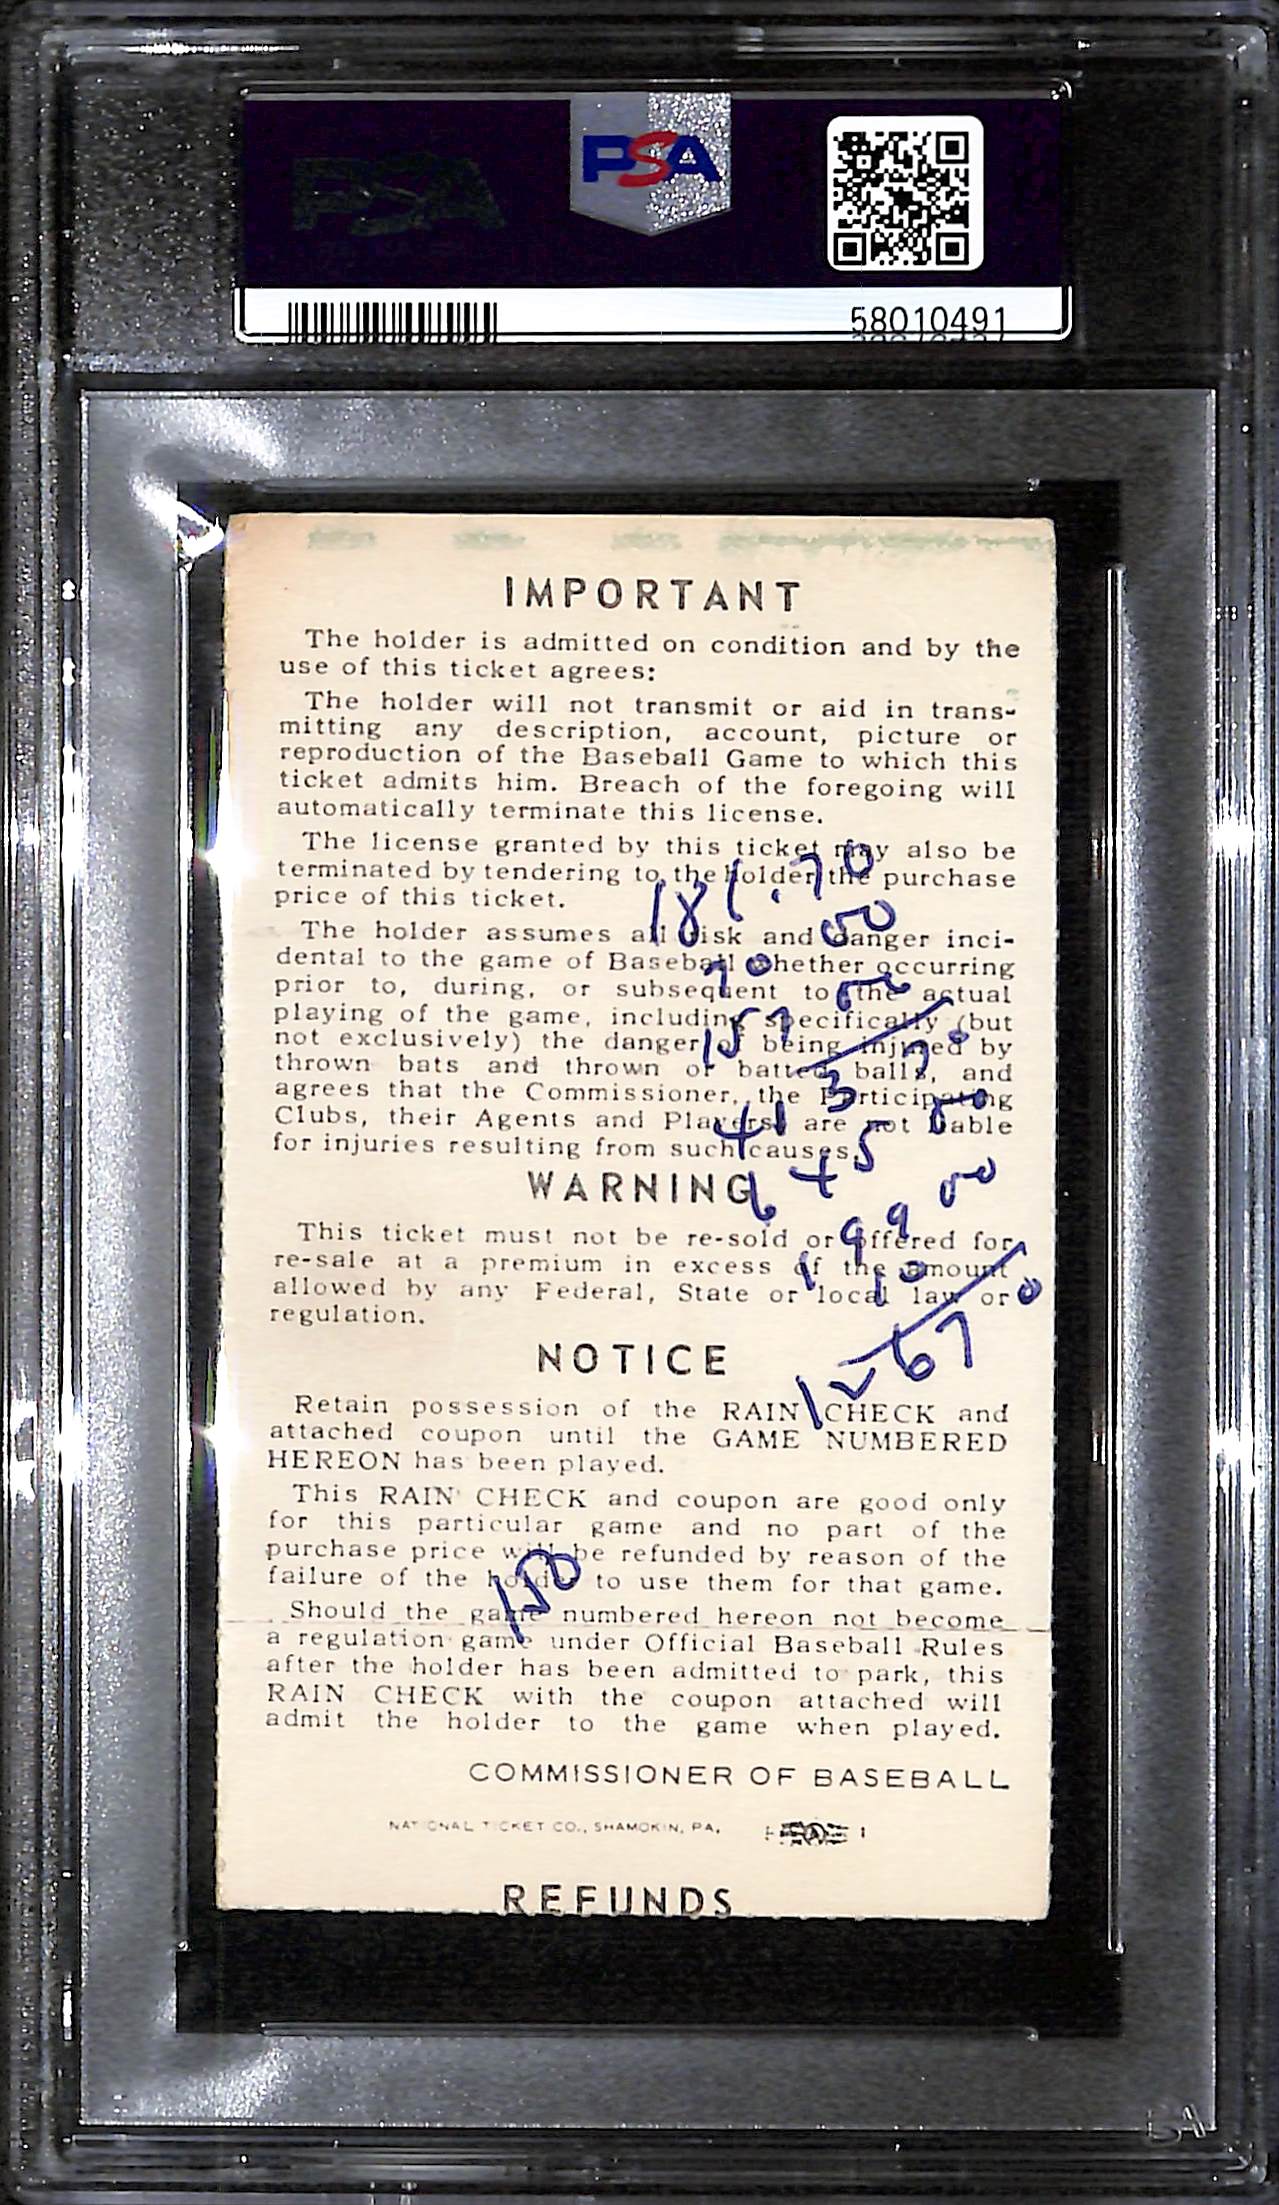 PSA
58010491
IMPORTANT
The holder is admitted on condition and by the
use of this ticket agrees:
The holder will not transmit or aid in trans-
mitting any description, account, picture or
reproduction of the Baseball Game to which this
ticket admits him. Breach of the foregoing will
automatically terminate this license.
The license granted by this ticket may also be
terminated by tendering to the holder the purchase
price of this ticket.
181.70
The holder assumes all risk and danger inci-
dental to the game of Baseball whether occurring
prior to, during, or subsequent to the actual
playing of the game, including specifically (but
not exclusively) the danger of being injured by
thrown bats and thrown or batted balls, and
agrees that the Commissioner, the Participating
Clubs, their Agents and Players are not liable
for injuries resulting from such causes.
WARNING
This ticket must not be re-sold or offered for
re-sale at a premium in excess of the amount
allowed by any Federal, State or local law or
regulation.
NOTICE
Retain possession of the RAIN CHECK and
attached coupon until the GAME NUMBERED
HEREON has been played.
This RAIN CHECK and coupon are good only
for this particular game and no part of the
purchase price will be refunded by reason of the
failure of the holder to use them for that game.
150
Should the game numbered hereon not become
a regulation game under Official Baseball Rules
after the holder has been admitted to park, this
RAIN CHECK with the coupon attached will
admit the holder to the game when played.
COMMISSIONER OF BASEBALL
NATIONAL TICKET CO., SHAMOKIN, PA.
REFUNDS